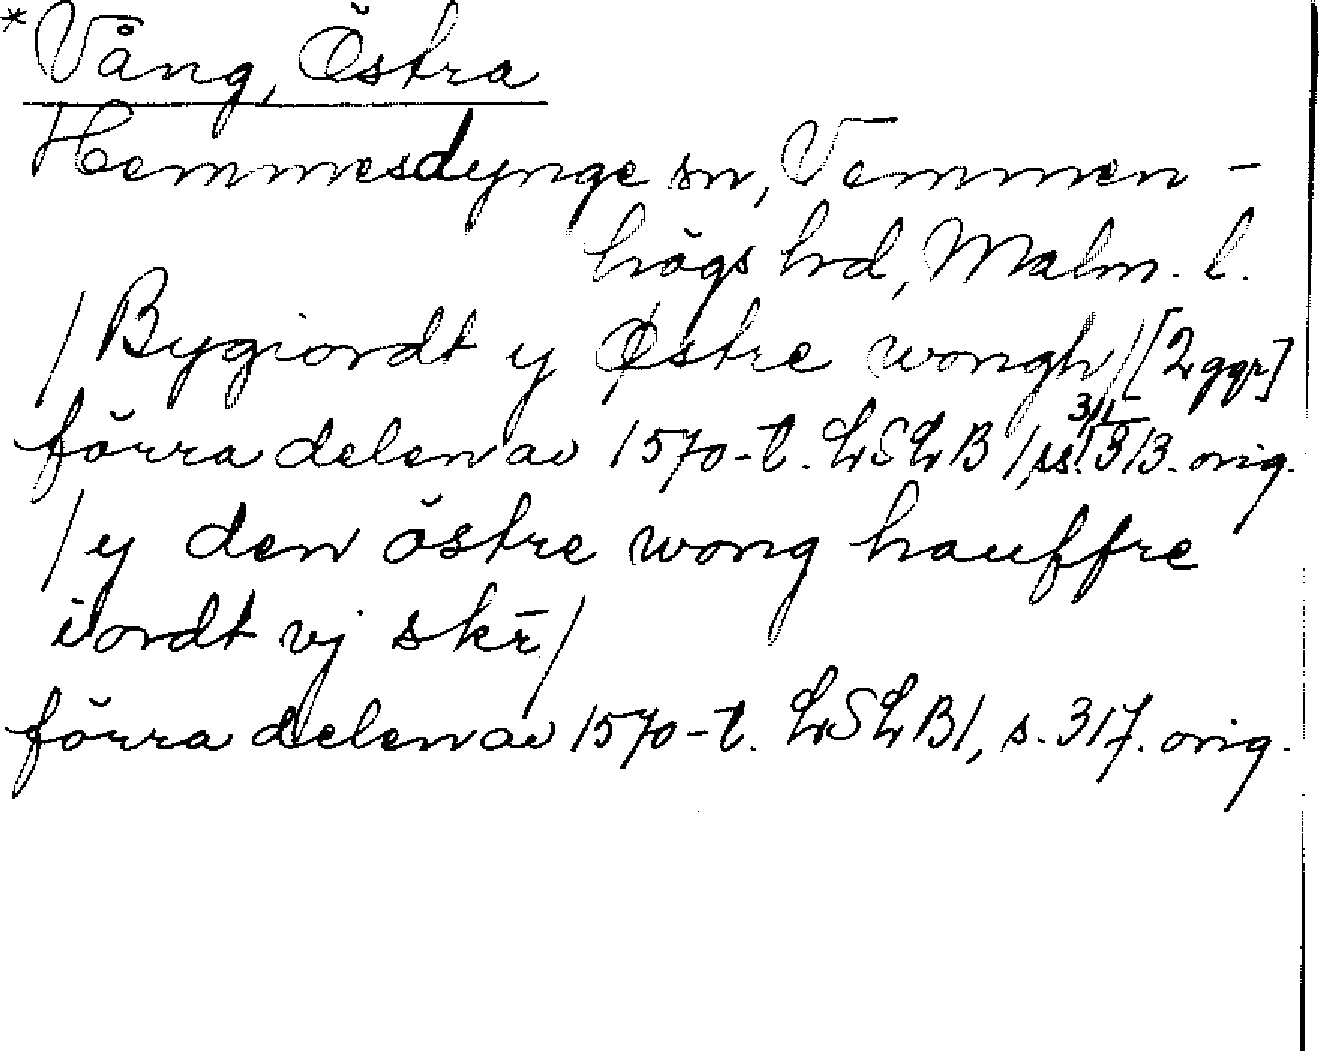 *Vång, Östra
Hemmesdynge sn, Vemmen-
högs hd, Malm. l.
/Bygiordt y Østre wongh/[2 ggr]
förra delen av 1570-t. LSLB 1, ss. 311, 313. orig.
/y den östre wong hauffre
iordt vj skr̄/
förra delen av 1570-t. LSLB 1, s. 317. orig.